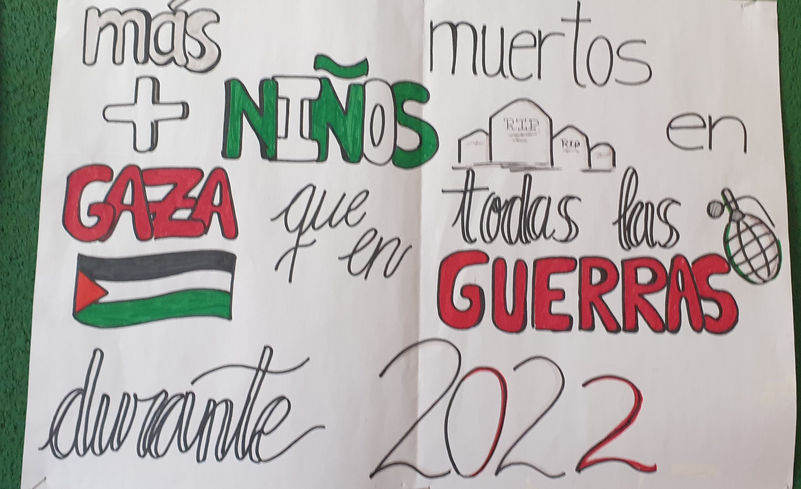 más muertos
+ NIÑOS RIP RIP en
GAZA que todas las
en GUERRAS
durante 2022